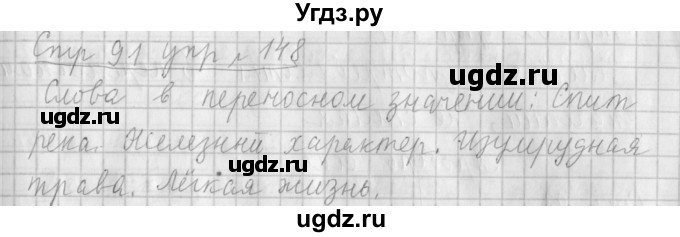 Угдз.ру
Стр 91 упр № 148
Слова в переносном значении: Спит
река. Железный характер. Изумрудная
трава. Лёгкая жизнь.
ugdz.ru
ugdz.ru
ugdz.ru
ugdz.ru
ugdz.ru
ugdz.ru